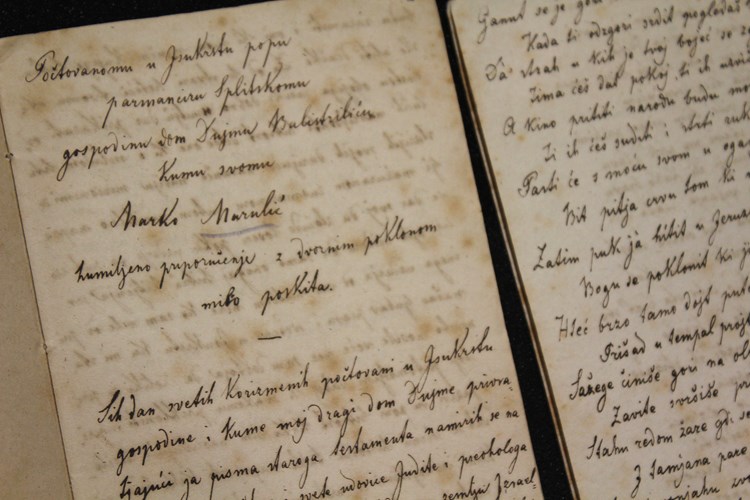 Počtovanomu u Jsukrstu popu
parmanciru Splitskomu
gospodinu dom Dujmu Balistriliću
Kumu svomu
Marko Marulić
humiljeno priporučenje z dvornim poklonom
milo poskita.
Sih dan svetih Korizmenih počtovani u Jsukrstu
gospodine i Kume moj dragi dom Dujme privra
tjajući ja pisma staroga testamenta namirih se na
svete udovice Judite i preohologa
zemlju Jzrael
Ganut se je
Kada ti odzgori srdit pogledaš
Da strah u kih je tvoj bojeć se
Zima ćeš dat pokoj ti ih
A kino prititi narodu budu
Ti ih ćeš suditi i strti
Parti će s moću svom u
Bit pitja crvu tom ki
Zatim puk ja hitit u Jeru
Bogu se poklonit ki
Hteć brzo tamo dojt
Prišad u tempal
Sažege činiše gori na
Zavite svršiše
Stahu redom žare gdi
Z tamjana pare